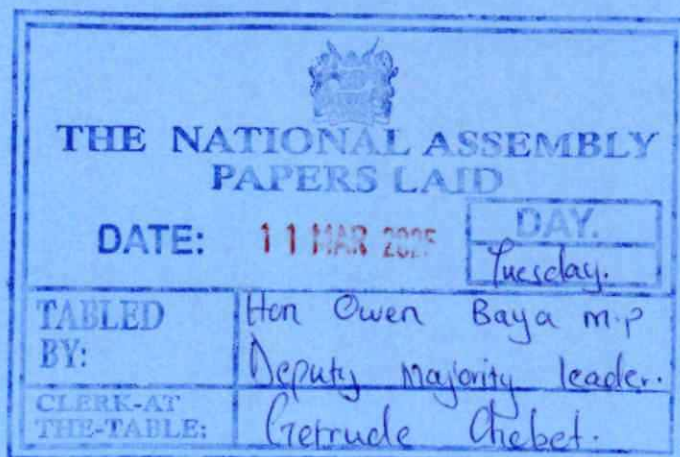 THE NATIONAL ASSEMBLY
PAPERS LAID
DATE: 11 MAR 2025
DAY.
Tuesday.
TABLED BY:
Hon Owen Baya m.p
Deputy Majority leader.
CLERK-AT THE-TABLE:
Getrude Chebet.